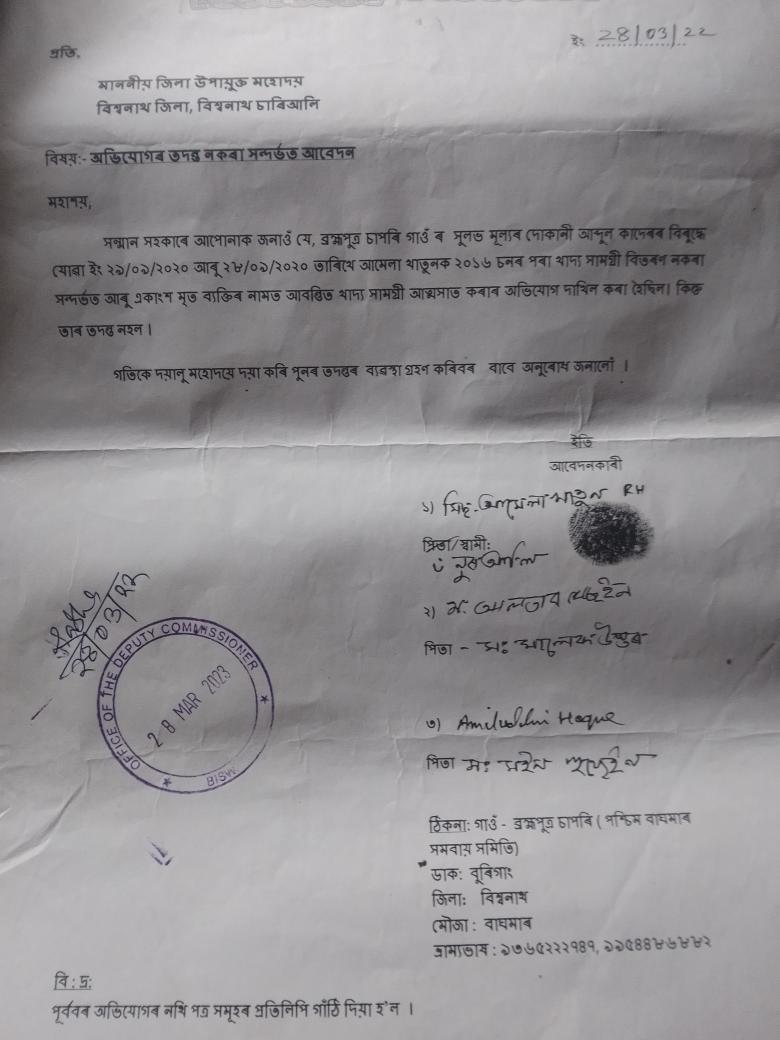 ইং 28/03/22
প্ৰতি,
মাননীয় জিলা উপায়ুক্ত মহোদয়
বিশ্বনাথ জিলা, বিশ্বনাথ চাৰিআলি
বিষয়:- অভিযোগৰ তদন্ত নকৰা সন্দৰ্ভত আবেদন
মহাশয়,
সন্মান সহকাৰে আপোনাক জনাওঁ যে, ব্ৰহ্মপুত্ৰ চাপৰি গাওঁ ৰ সুলভ মূল্যৰ দোকানী আব্দুল কাদেৰৰ বিৰূদ্ধে
যোৱা ইং ২১/০১/২০২০ আৰু ২৮/০১/২০২০ তাৰিখে আমেনা খাতুনক ২০১৬ চনৰ পৰা খাদ্য সামগ্ৰী বিতৰণ নকৰা
সন্দৰ্ভত আৰু একাংশ মৃত ব্যক্তিৰ নামত আবণ্ঠিত খাদ্য সামগ্ৰী আত্মসাত কৰাৰ অভিযোগ দাখিল কৰা হৈছিল। কিন্তু
তাৰ তদন্ত নহল ।
গতিকে দয়ালু মহোদয়ে দয়া কৰি পুনৰ তদন্তৰ ব্যৱস্থা গ্ৰহণ কৰিবৰ বাবে অনুৰোধ জনালোঁ ।
ইতি
আবেদনকাৰী
১) খাতুন RH
পিতা/স্বামী:
২)
পিতা -
28/03/23
OFFICE OF THE DEPUTY COMMISSIONER
28 MAR 2023
BISW
৩) Haque
পিতা
ঠিকনা: গাওঁ - ব্ৰহ্মপুত্ৰ চাপৰি ( পশ্চিম বাঘমাৰ
সমবায় সমিতি)
ডাক: বুৰিগাং
জিলা: বিশ্বনাথ
মৌজা : বাঘমাৰ
ভ্ৰাম্যভাষ :
বি : দ্ৰ:
পূৰ্বৰ অভিযোগৰ নথি পত্ৰ সমূহৰ প্ৰতিলিপি গাঁঠি দিয়া হ'ল ।